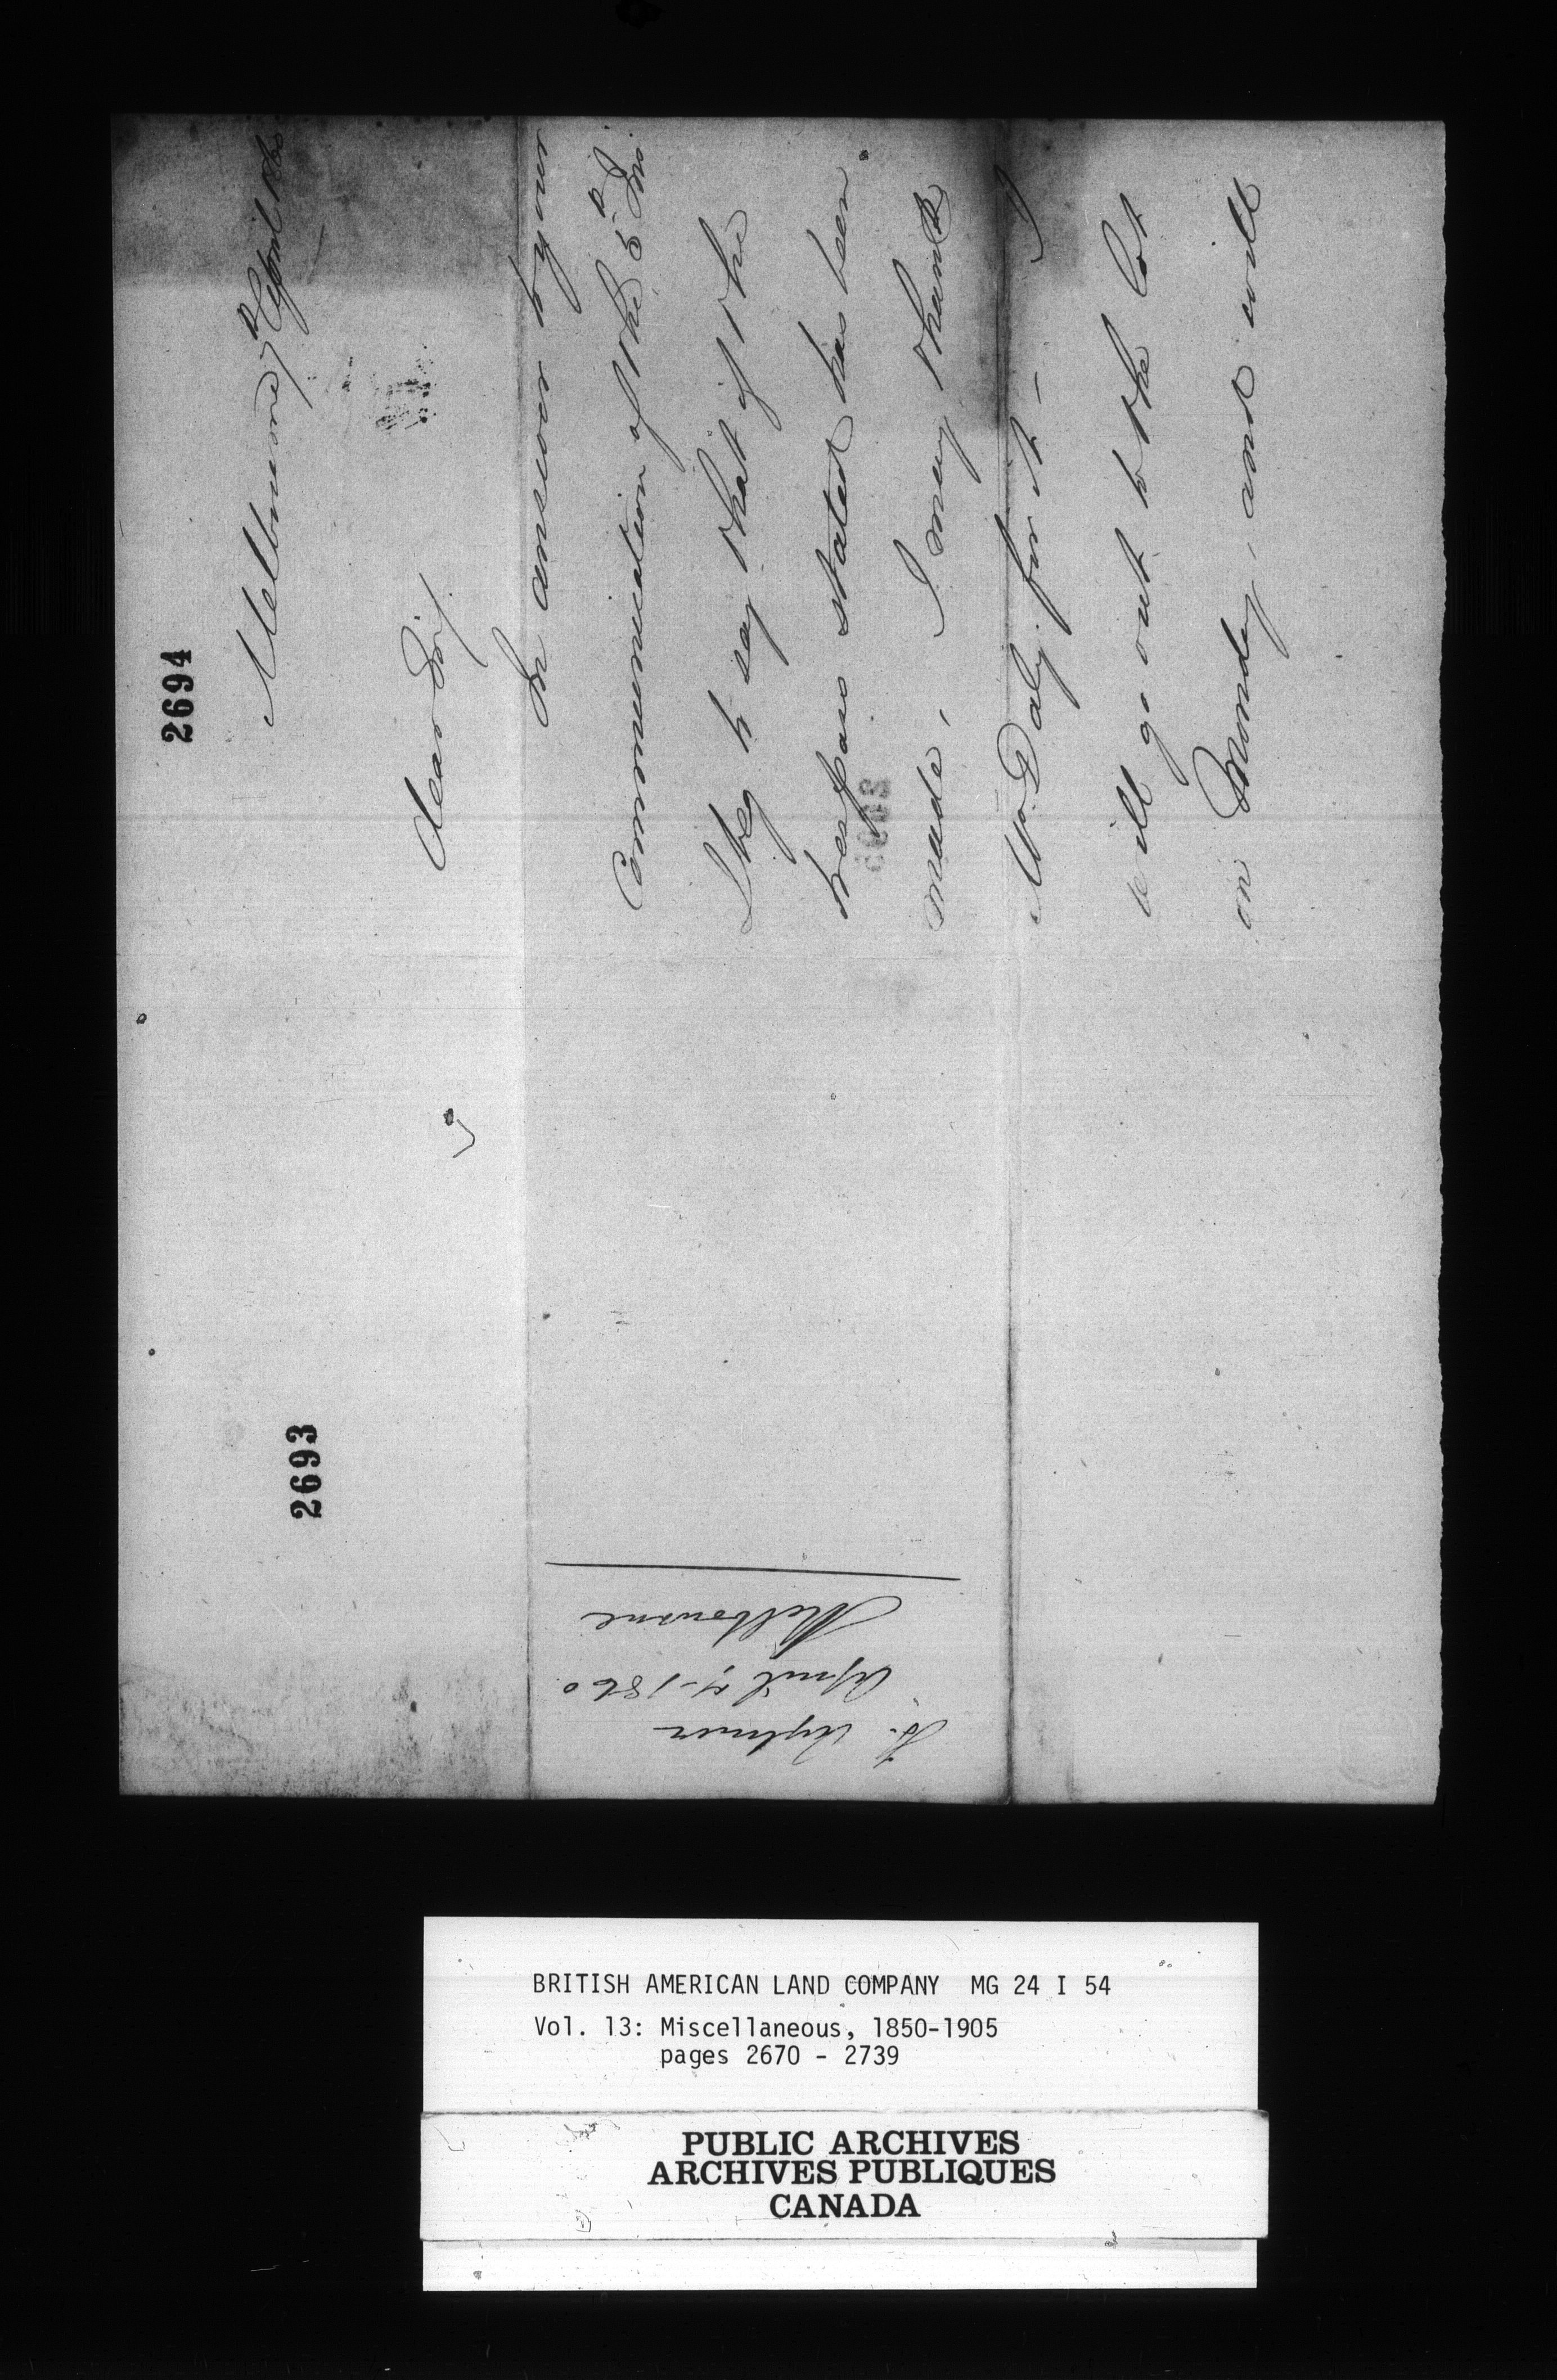 2694
Melbourne 7th April 1860
Dear Sir,
In answer to your
Communication of the 5th Ins.
I beg to say that if the
trespass stated has been
made, I may thank
Mr Daly for it - I
will go out to the lot
on Monday, and will
2693
H. Aylmer
April 7-1860
Melbourne
BRITISH AMERICAN LAND COMPANY MG 24 I 54
Vol. 13: Miscellaneous, 1850-1905
pages 2670 - 2739
PUBLIC ARCHIVES
ARCHIVES PUBLIQUES
CANADA